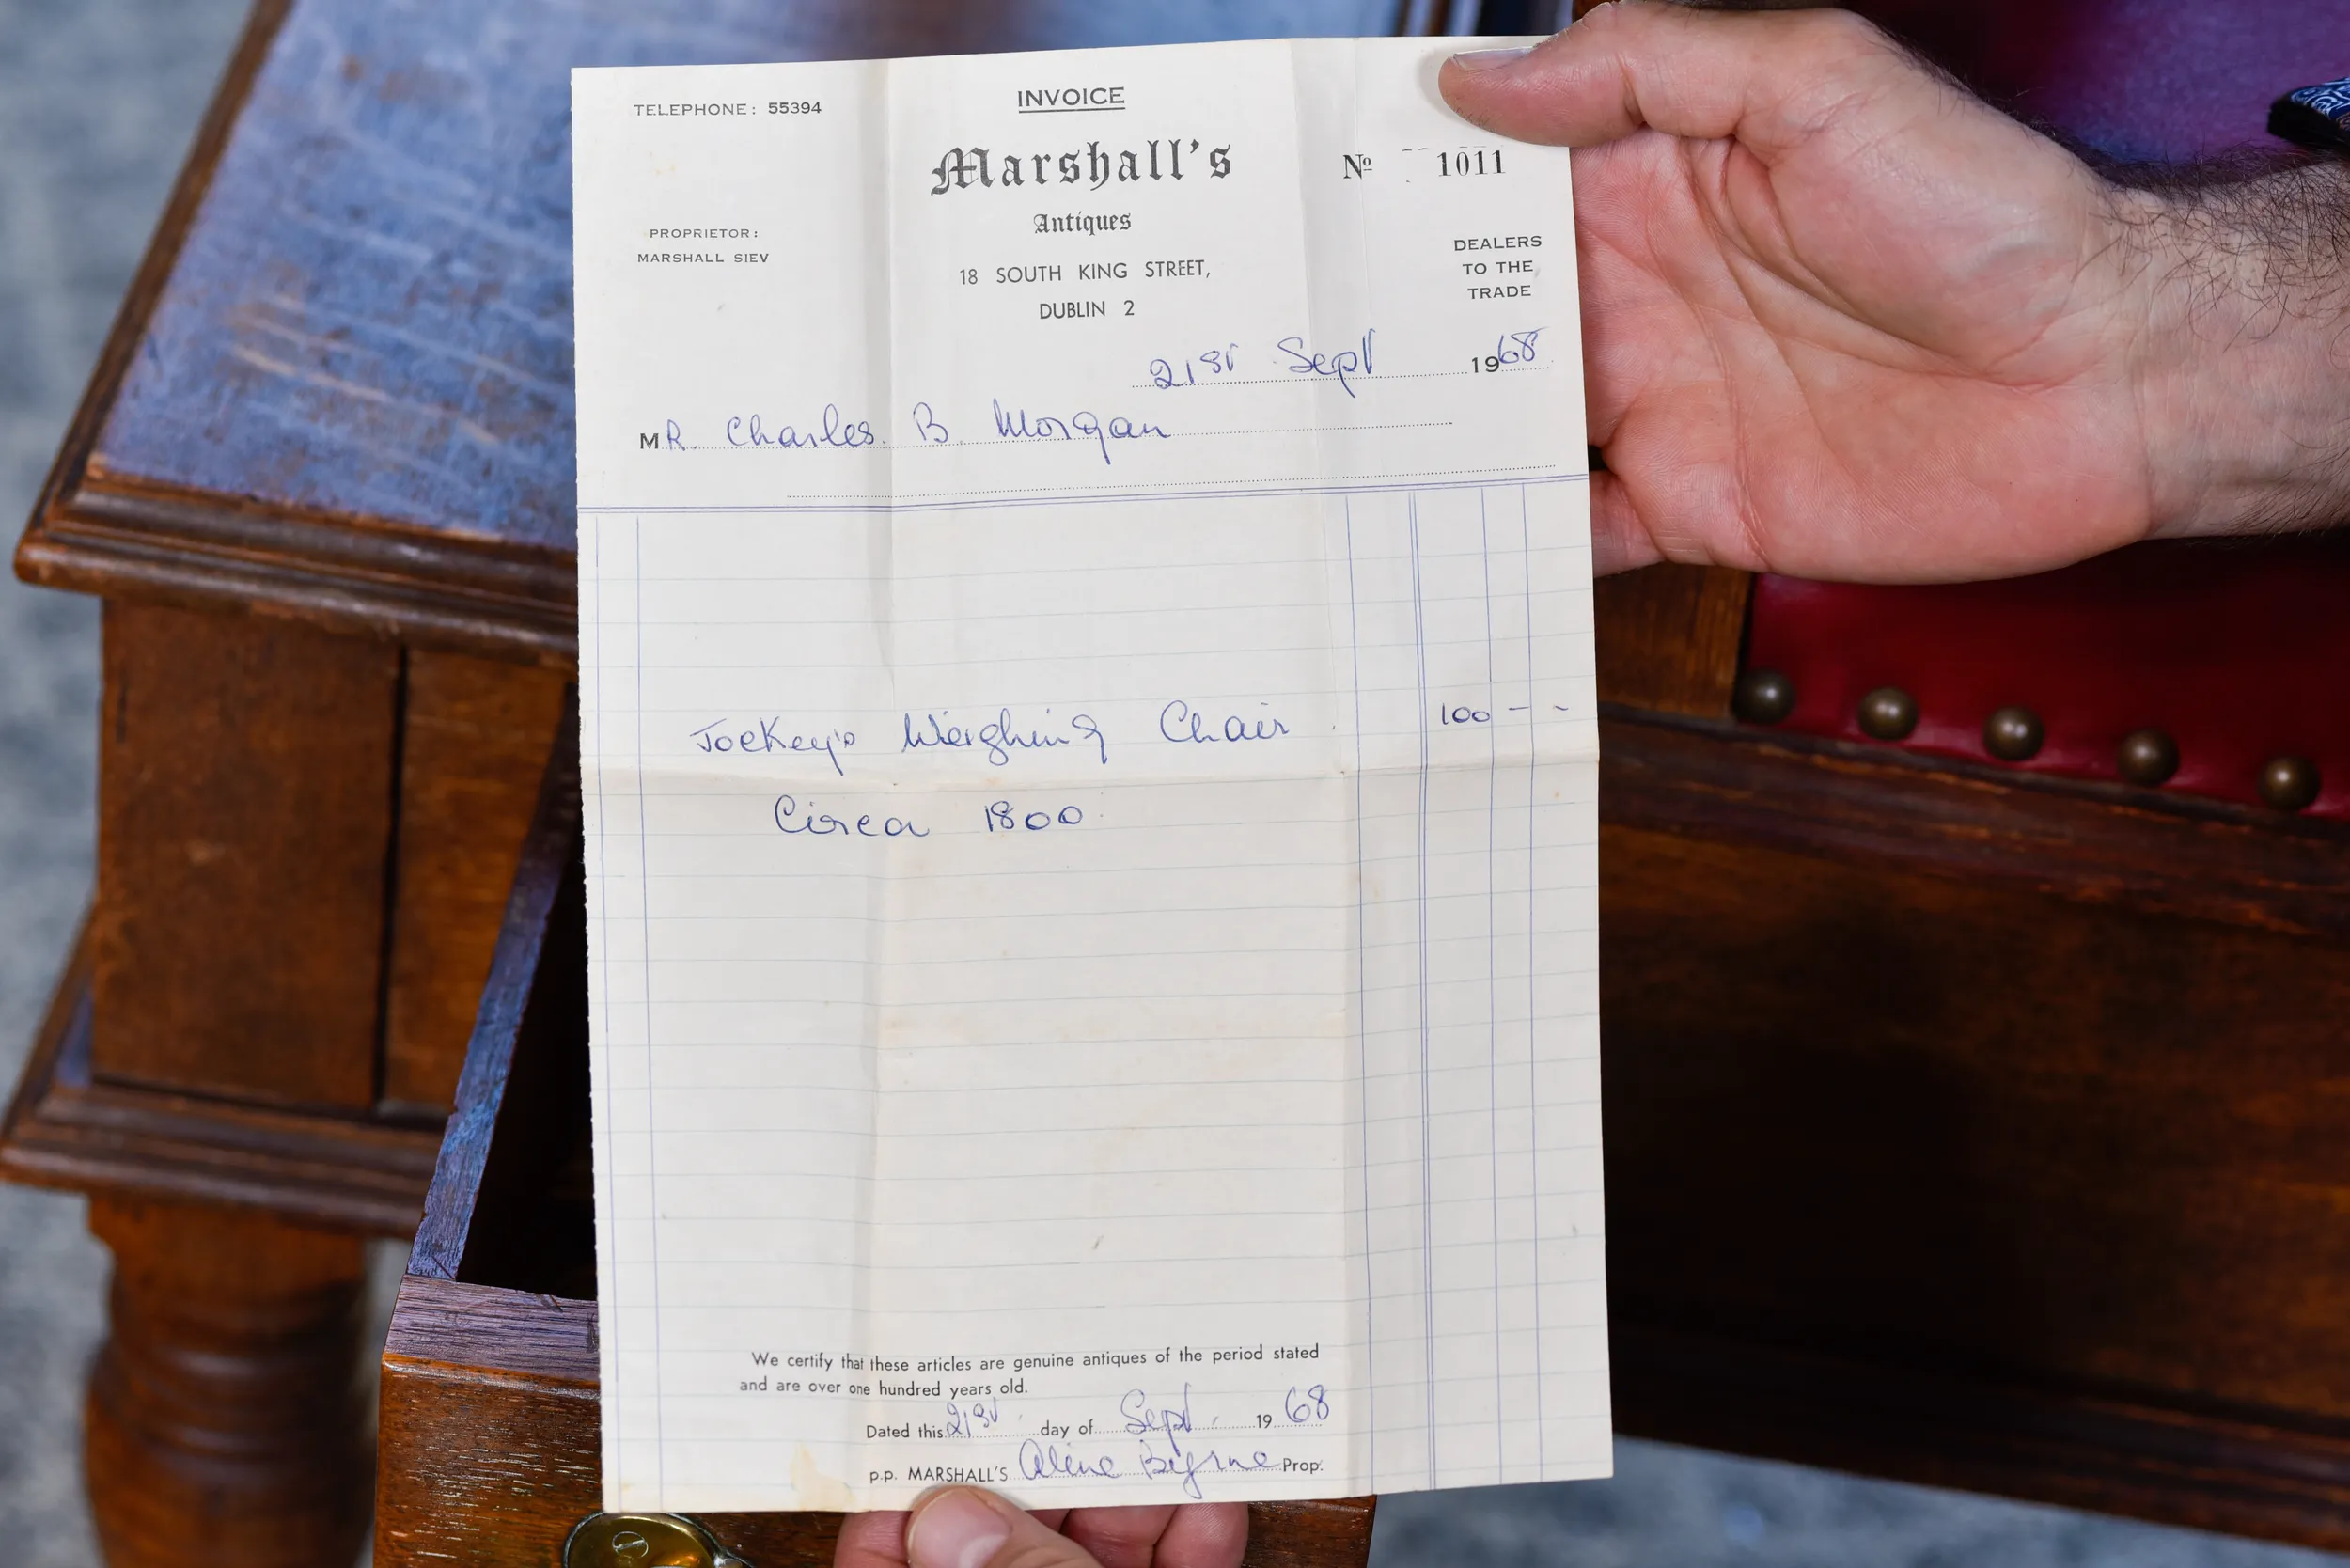 INVOICE
TELEPHONE: 55394
Marshall's
Nº 1011
Antiques
PROPRIETOR:
MARSHALL SIEV
18 SOUTH KING STREET,
DUBLIN 2
DEALERS
TO THE
TRADE
21st Sept 1968
MR. Charles. B. Morgan
Jockey's Weighing Chair. 100 - -
Circa 1800.
We certify that these articles are genuine antiques of the period stated
and are over one hundred years old.
Dated this 21st day of Sept. 1968
p.p. MARSHALL'S Aline Byrne Prop.